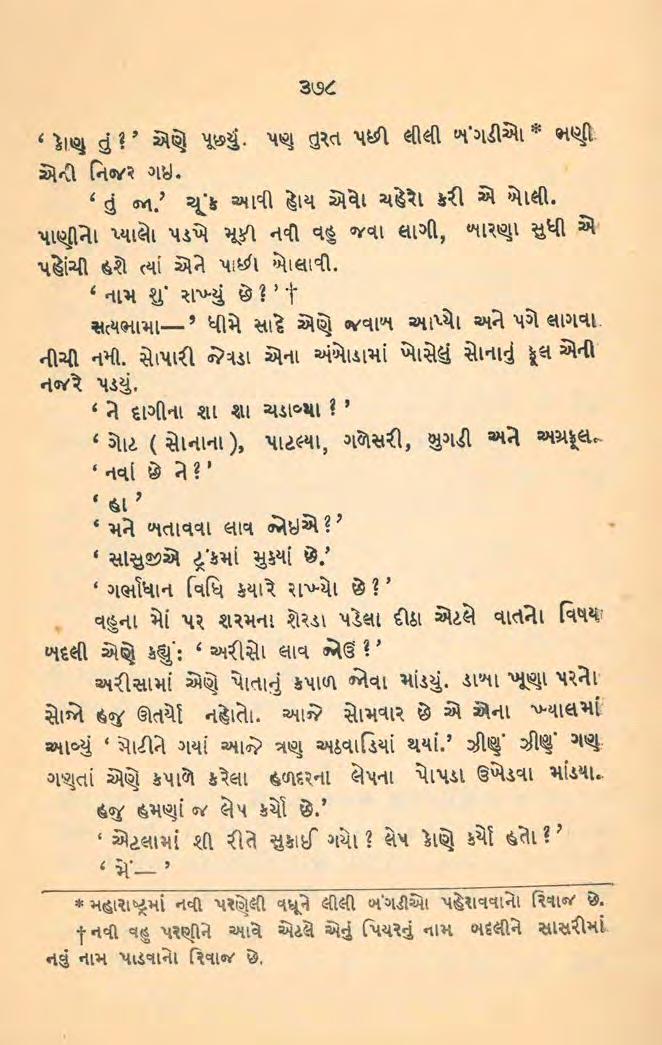 ૩૭૮
‘ કોણ તું ? ’ એણે પૂછ્યું. પણ તુરત પછી લીલી બંગડીઓ * ભણી
એની નિજર ગઇ.
‘ તું જા.’ ચૂંક આવી હોય એવો ચહેરો કરી એ બોલી.
પાણીનો પ્યાલો પડખે મૂકી નવી વહુ જવા લાગી, બારણા સુધી એ
પહોંચી હશે ત્યાં એને પાછી બોલાવી.
‘ નામ શું રાખ્યું છે ? ’ †
સત્યભામા— ’ ધીમે સાદે એણે જવાબ આપ્યો અને પગે લાગવા
નીચી નમી. સોપારી જેવડા એના અંબોડામાં ખોસેલું સોનાનું ફૂલ એની
નજરે પડયું.
‘ ને દાગીના શા શા ચડાવ્યા ? ’
‘ ગોટ ( સોનાના ), પાટલ્યા, ગળેસરી, બુગડી અને અગ્રફૂલ.
‘ નવાં છે ને ? ’
‘ હા ’
‘ મને બતાવવા લાવ જોઇએ ? ’
‘ સાસુજીએ ટ્રંકમાં મુકયાં છે.’
‘ ગર્ભાધાન વિધિ કયારે રાખ્યો છે ? ’
વહુના મોં પર શરમના શેરડા પડેલા દીઠા એટલે વાતનો વિષય
બદલી એણે કહ્યું: ‘ અરીસો લાવ જોઉં ? ’
અરીસામાં એણે પોતાનું કપાળ જોવા માંડયું. ડાબા ખૂણા પરનો
સોજો હજુ ઊતર્યો નહોતો. આજે સોમવાર છે એ એના ખ્યાલમાં
આવ્યું ‘ સોટીને ગયાં આજે ત્રણ અઠવાડિયાં થયાં.’ ઝીણું ઝીણું ગણ
ગણતાં એણે કપાળે કરેલા હળદરના લેપના પોપડા ઉખેડવા માંડયા.
હજુ હમણાં જ લેપ કર્યો છે.’
‘ એટલામાં શી રીતે સુકાઈ ગયો ? લેપ કોણે કર્યો હતો ? ’
‘ મેં— ’
* મહારાષ્ટ્રમાં નવી પરણેલી વધૂને લીલી બંગડીઓ પહેરાવવાનો રિવાજ છે.
† નવી વહુ પરણીને આવે એટલે એનું પિયરનું નામ બદલીને સાસરીમાં
નવું નામ પાડવાનો રિવાજ છે.